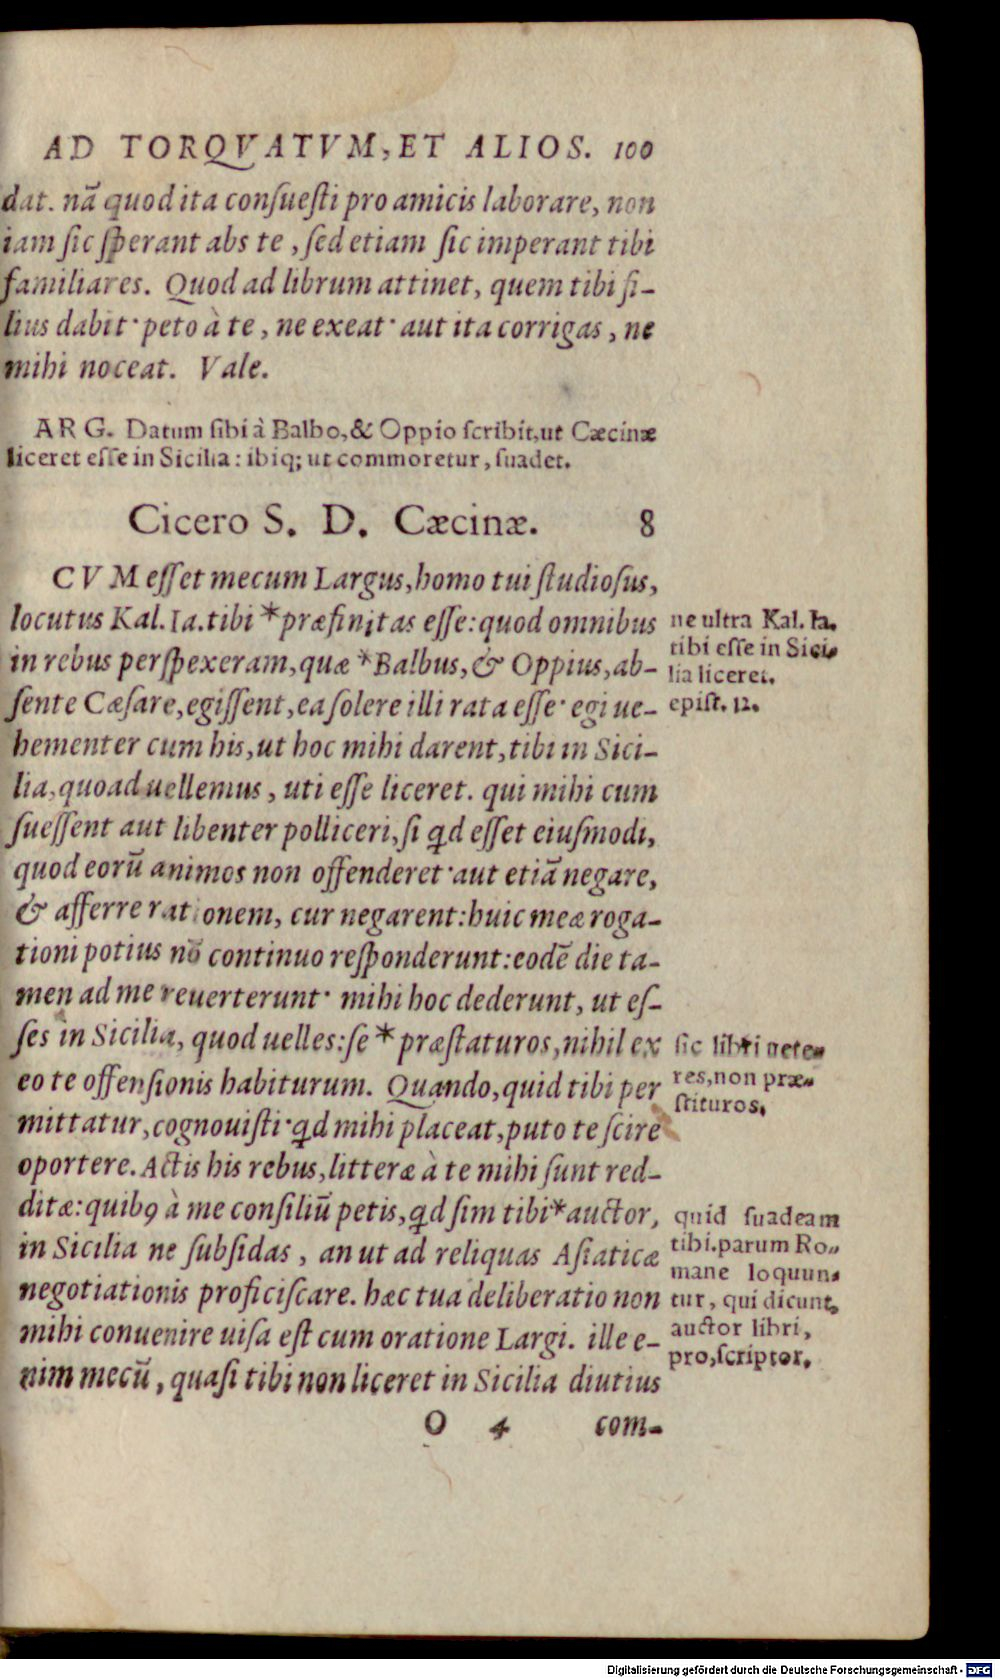 AD TORQVATVM, ET ALIOS. 100
dat. nã quod ita consuesti pro amicis laborare, non
iam sic sperant abs te, sed etiam sic imperant tibi
familiares. Quod ad librum attinet, quem tibi fi-
lius dabit· peto à te, ne exeat· aut ita corrigas, ne
mihi noceat. Vale.
ARG. Datum sibi à Balbo, & Oppio scribit, ut Cæcinæ
liceret esse in Sicilia: ibiq; ut commoretur, suadet.
Cicero S. D. Cæcinæ. 8
CVM esset mecum Largus, homo tui studiosus,
locutus Kal. Ia. tibi *præfinitas esse: quod omnibus
in rebus perspexeram, quæ *Balbus, & Oppius, ab-
sente Cæsare, egissent, ea solere illi rata esse· egi ue-
hementer cum his, ut hoc mihi darent, tibi in Sici-
lia, quoad uellemus, uti esse liceret. qui mihi cum
suessent aut libenter polliceri, si qd esset eiusmodi,
quod eorũ animos non offenderet· aut etiã negare,
& afferre rationem, cur negarent: huic meæ roga-
tioni potius nõ continuo responderunt: eodẽ die ta-
men ad me reuerterunt· mihi hoc dederunt, ut es-
ses in Sicilia, quod uelles: se * præstaturos, nihil ex
eo te offensionis habiturum. Quando, quid tibi per
mittatur, cognouisti· qd mihi placeat, puto te scire
oportere. Actis his rebus, litteræ à te mihi sunt red-
ditæ: quibꝰ à me consiliũ petis, qd sim tibi *auctor,
in Sicilia ne subsidas, an ut ad reliquas Asiaticæ
negotiationis proficiscare. hæc tua deliberatio non
mihi conuenire uisa est cum oratione Largi. ille e-
nim mecũ, quasi tibi non liceret in Sicilia diutius
O 4 com-
ne ultra Kal. Ia.
tibi esse in Sici-
lia liceret.
epist. 12.
sic libri uete-
res, non præ-
stituros.
quid suadeam
tibi. parum Ro-
mane loquun-
tur, qui dicunt,
auctor libri,
pro, scriptor.
Digitalisierung gefördert durch die Deutsche Forschungsgemeinschaft - DFG